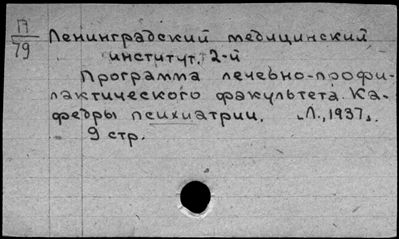 П
79
Ленинградский медицинский
институт. 2-й
Программа лечебно-профи-
лактического факультета. Ка-
федры психиатрии. „Л., 1937„.
9 стр.